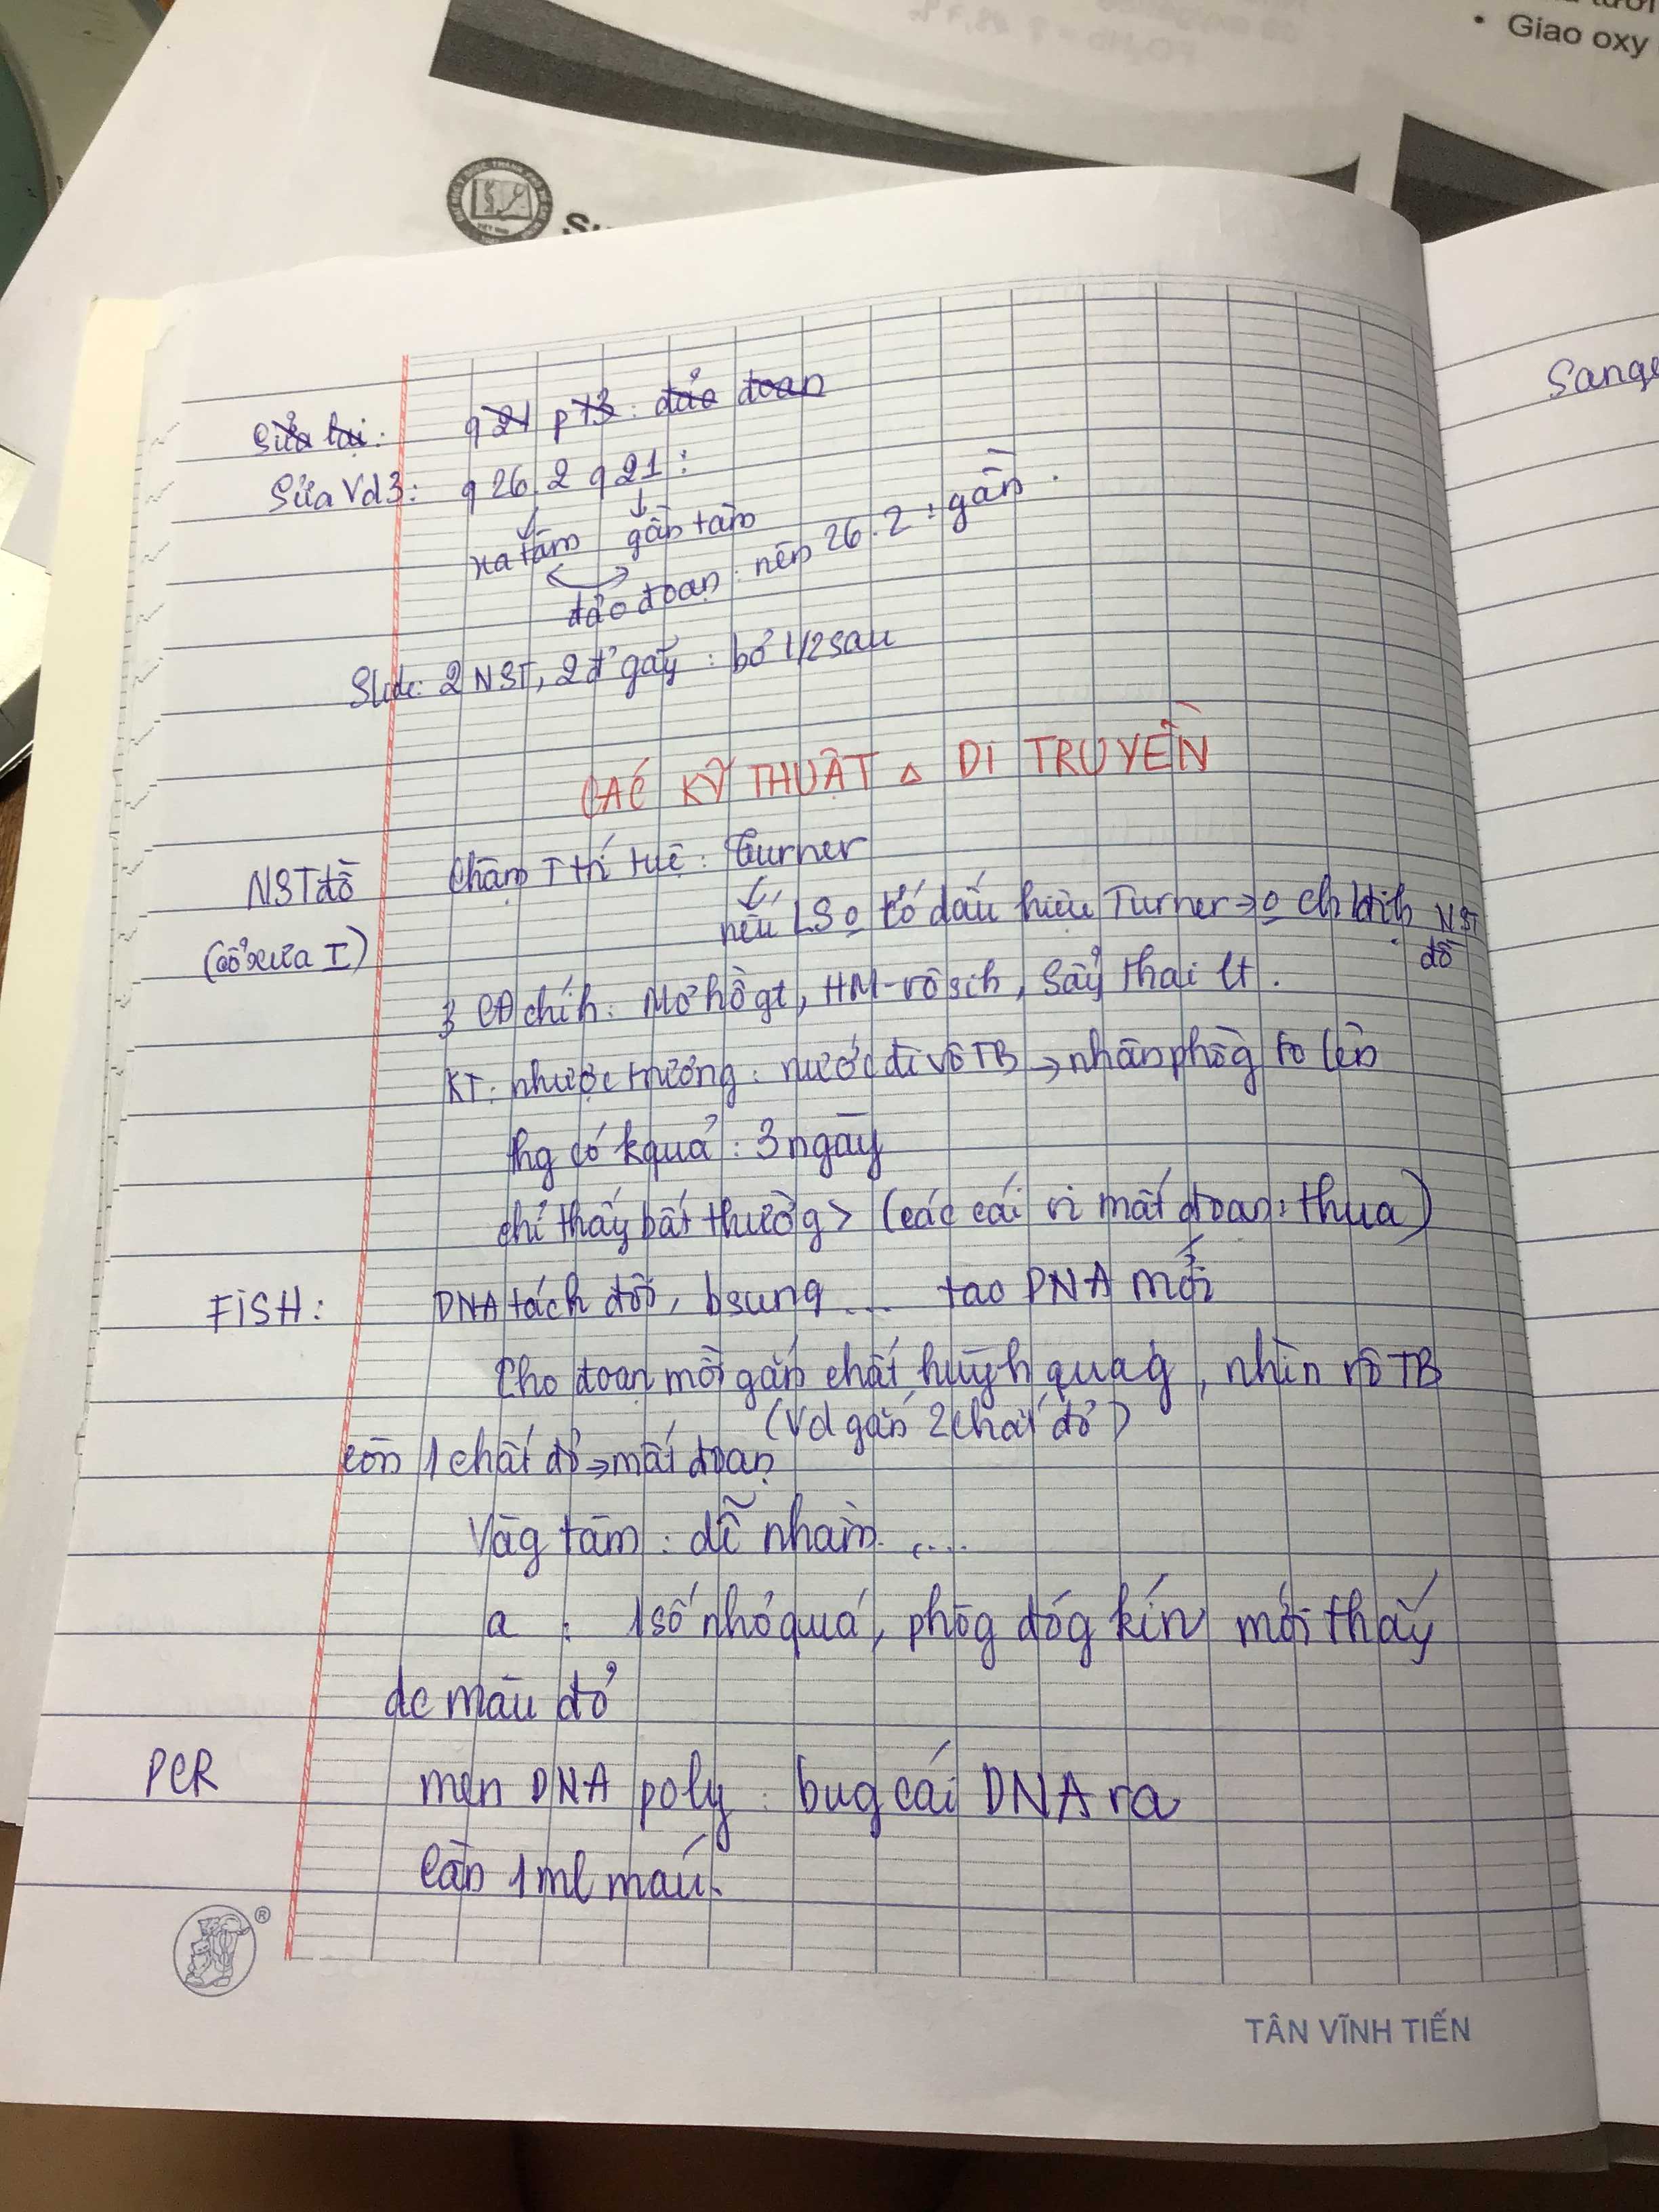 tươi
• Giao oxy
Sange
Sửa lại: q21 p13: đảo đoạn
Sửa Vd3: q26.2 q21:
xa tâm gần tâm
đảo đoạn: nên 26.2: gần.
Slide: 2 NST, 2 đ' gãy: bỏ 1/2 sau
CÁC KỸ THUẬT △ DI TRUYỀN
NST đồ Chậm T trí tuệ: Turner
nếu LS o có dấu hiệu Turner → o ch định NST
đồ
(cổ xưa I)
3 CĐ chính: Mơ hồ gt, HM-vô sih, sẩy thai lt.
KT: nhược trương: nước đi vô TB → nhân phồg to lên
hg có kquả: 3 ngày
chỉ thấy bất thườg > (các cái vi mất đoạn: thua)
FiSH: DNA tách đôi, bsung ... tạo DNA mới
Cho đoạn mồi gắn chất huỳh quag, nhìn vô TB
(Vd gắn 2 chất đỏ)
còn 1 chất đỏ → mất đoạn
Vàg tâm: dễ nhầm ....
a : 1 số nhỏ quá, phòg đóg kín mới thấy
dc màu đỏ
PCR men DNA poly: bug cái DNA ra
Cần 1ml máu.
®
TÂN VĨNH TIẾN